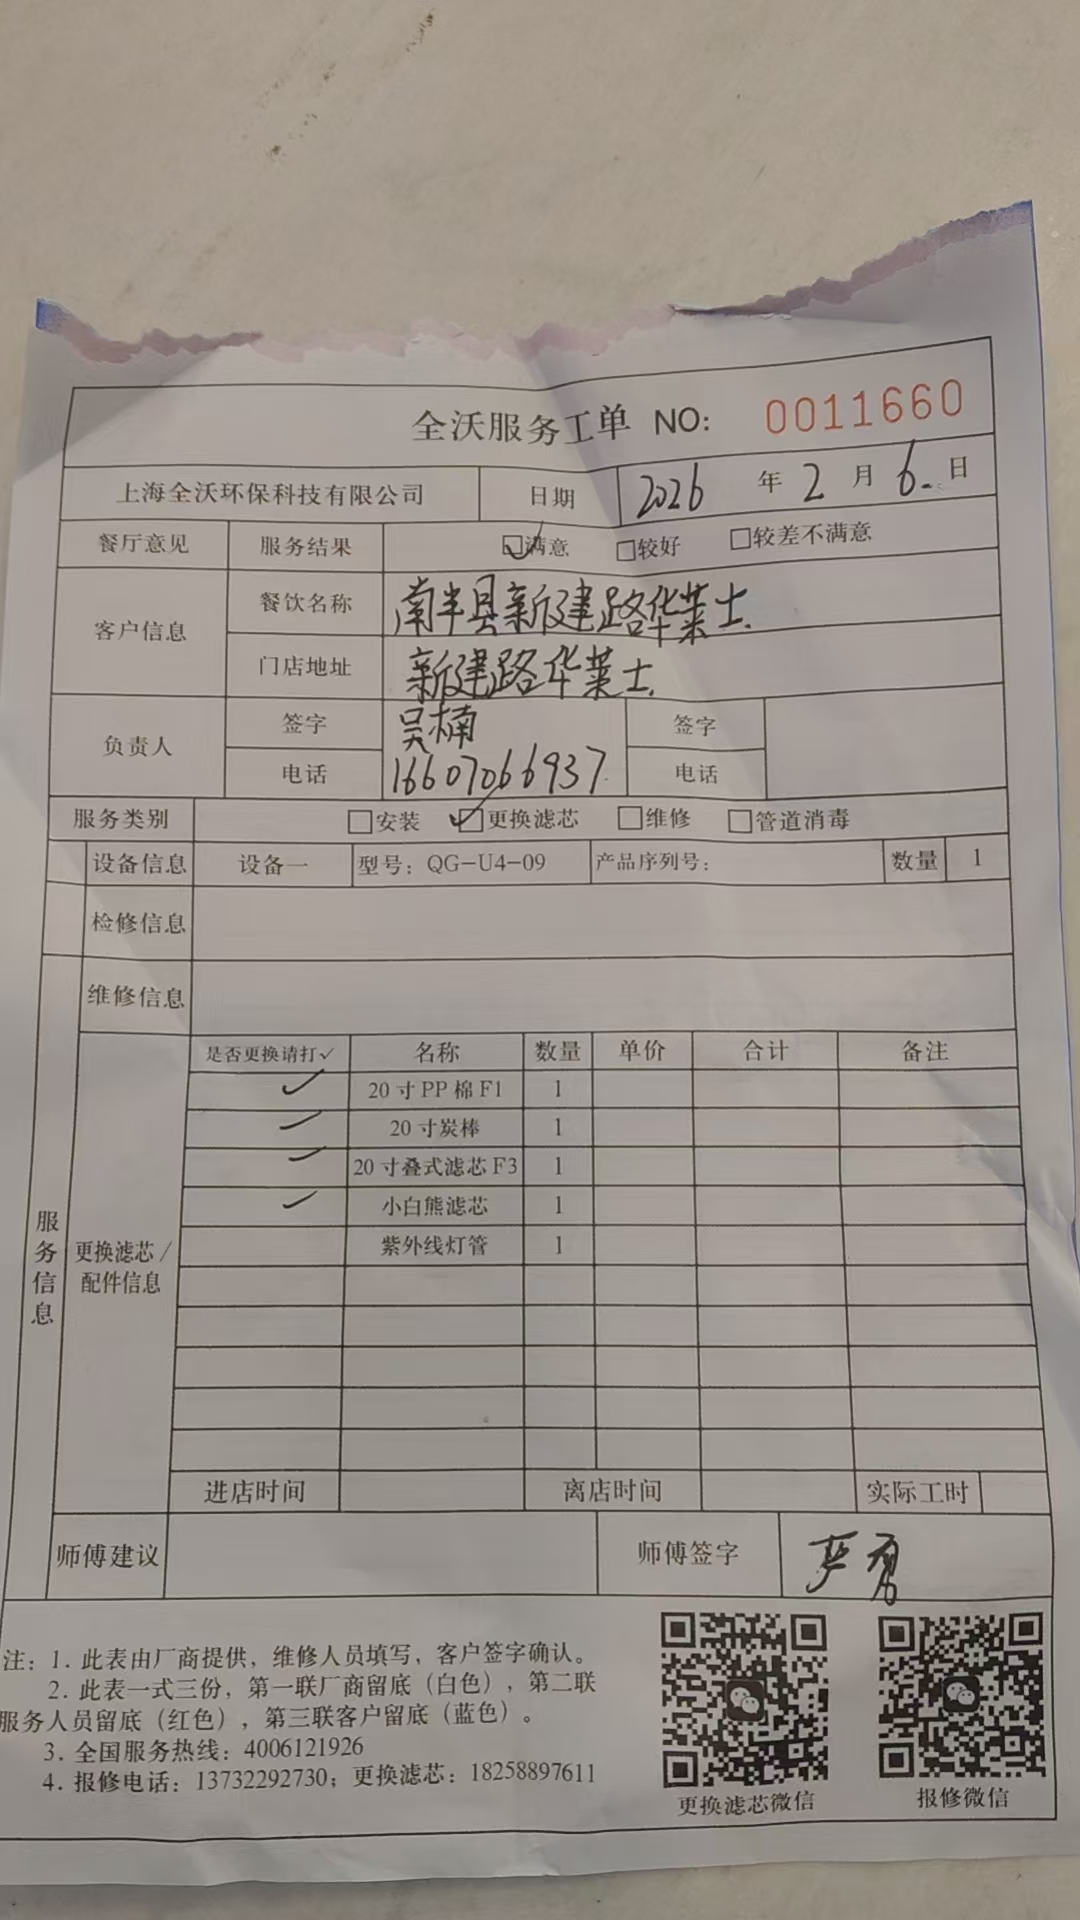 全沃服务工单 NO: 0011660
上海全沃环保科技有限公司 日期 2026 年 2 月 6 日
餐厅意见 服务结果 ☑满意 □较好 □较差不满意
客户信息 餐饮名称 南丰县新建路华莱士
门店地址 新建路华莱士
负责人 签字 吴楠 签字
电话 16607066937 电话
服务类别 □安装 ☑更换滤芯 □维修 □管道消毒
设备信息 设备一 型号: QG-U4-09 产品序列号: 数量 1
检修信息
维修信息
服务信息
更换滤芯/配件信息
是否更换请打✓ 名称 数量 单价 合计 备注
✓ 20寸PP棉F1 1
✓ 20寸炭棒 1
✓ 20寸叠式滤芯F3 1
✓ 小白熊滤芯 1
紫外线灯管 1
进店时间 离店时间 实际工时
师傅建议 师傅签字
注: 1. 此表由厂商提供, 维修人员填写, 客户签字确认。
2. 此表一式三份, 第一联厂商留底(白色), 第二联
服务人员留底(红色), 第三联客户留底(蓝色)。
3. 全国服务热线: 4006121926
4. 报修电话: 13732292730; 更换滤芯: 18258897611
更换滤芯微信 报修微信